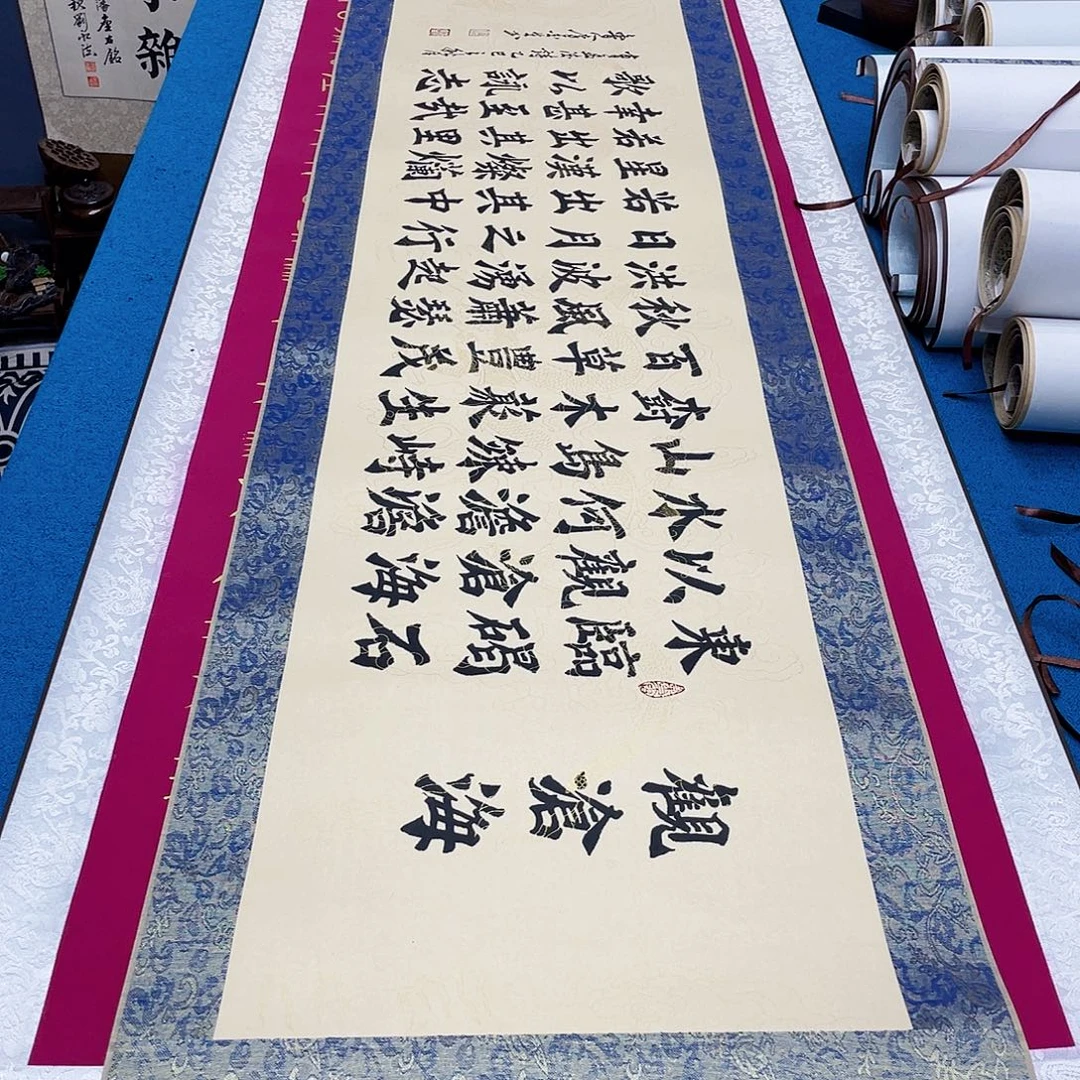 觀滄海
東臨碣石
以觀滄海
水何澹澹
山島竦峙
樹木叢生
百草豐茂
秋風蕭瑟
洪波湧起
日月之行
若出其中
星漢燦爛
若出其里
幸甚至哉
歌以詠志
雜